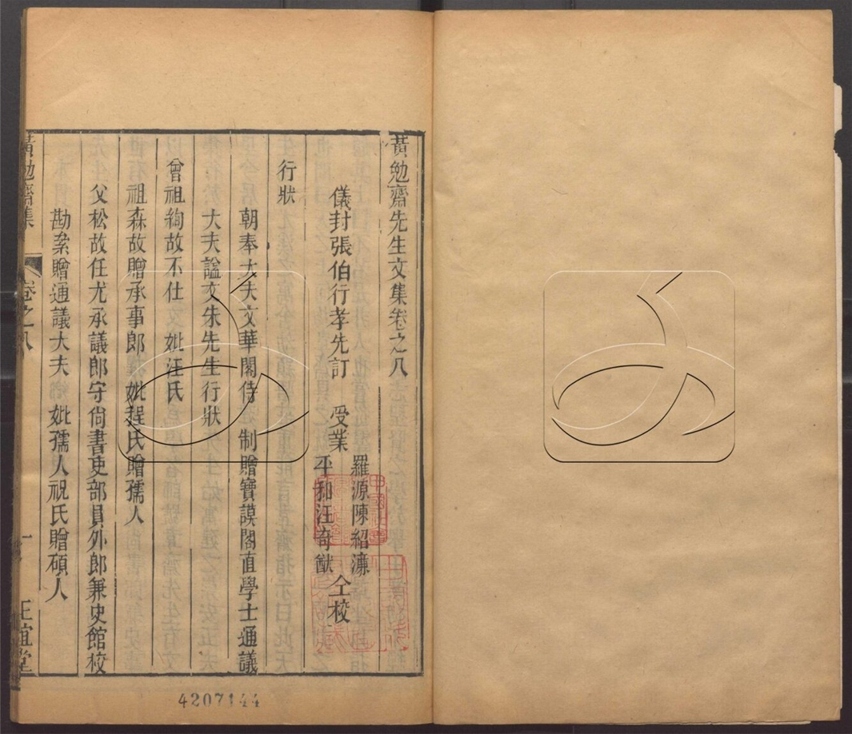 黃勉齋先生文集卷之八
儀封張伯行孝先訂　受業
羅源陳紹濂
平和汪奇猷
仝校
行狀
朝奉大夫文華閣待　制贈寶謨閣直學士通議
大夫諡文朱先生行狀
曾祖絢故不仕　妣汪氏
祖森故贈承事郎　妣程氏贈孺人
父松故任尤承議郎守尙書吏部員外郎兼史館校
勘累贈通議大夫　妣孺人祝氏贈碩人
黃勉齋集
卷之八
一
正誼堂
4207144